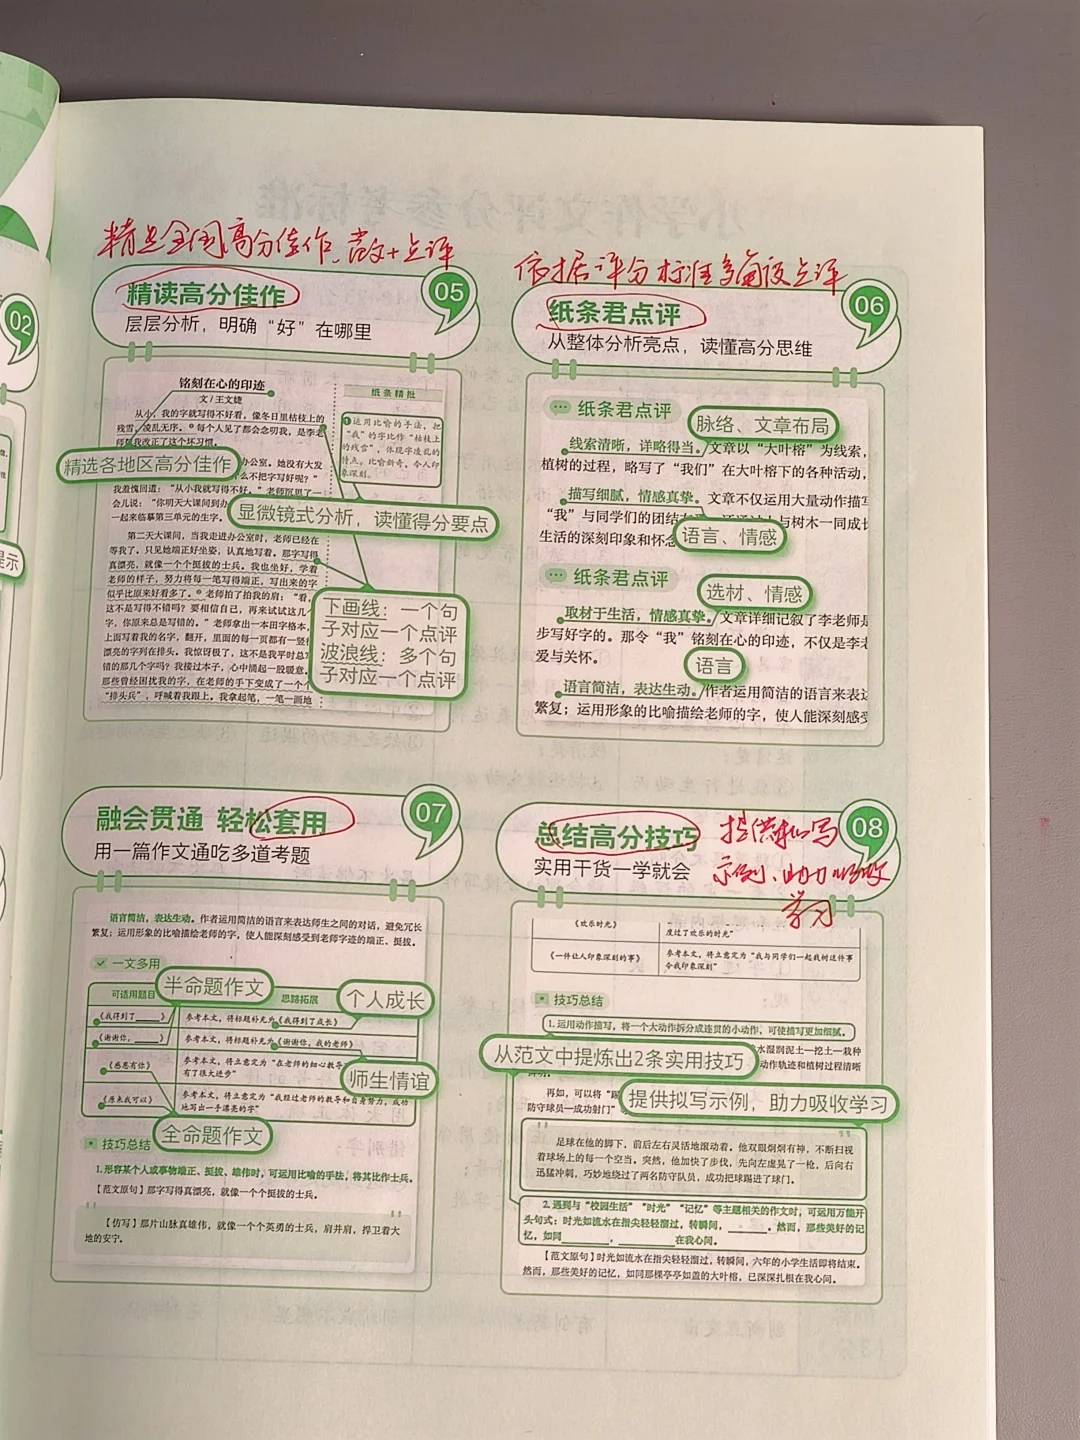 小学作文评分参考标准
精选全国高分佳作、范文+点评
精读高分佳作
05
层层分析，明确“好”在哪里
铭刻在心的印迹
文/王文婕
从小，我的字就写得不好看，像冬日里枯枝上的
残雪，凌乱无序。每个人见了都会念叨我，是李老
师帮我改正了这个坏习惯。
精选各地区高分佳作
办公室。她没有大发
么不把字写好呢？”
我羞愧回道：“从小我就写得不好。”老师沉思了一
会儿说：“你明天大课间到办
一起来临摹第三单元的生字。
纸条精批
1运用比喻的手法，把
“我”的字比作“枯枝上
的残雪”，体现字凌乱的
特点。比喻新奇，令人印
象深刻。
显微镜式分析，读懂得分要点
第二天大课间，当我走进办公室时，老师已经在
等我了。只见她端正好坐姿，认真地写着。那字写得
真漂亮，就像一个个挺拔的士兵。我也坐好，学着
老师的样子，努力将每一笔写得端正，写出来的字
似乎比原来好看多了。老师拍了拍我的肩：“看，
这不是写得不错吗？要相信自己，再来试试这几
字，你原来总是写错的。”老师拿出一本田字格本，
上面写着我的名字，翻开，里面的每一页都有一竖
漂亮的字列在排头。我惊讶极了，这不是我平时总
错的那几个字吗？我接过本子，心中涌起一股暖意。
那些曾经困扰我的字，在老师的手下变成了一个个
“排头兵”，呼喊着我跟上。我拿起笔，一笔一画地
下画线：一个句
子对应一个点评
波浪线：多个句
子对应一个点评
依据评分标准多角度点评
纸条君点评
06
从整体分析亮点，读懂高分思维
纸条君点评
脉络、文章布局
线索清晰，详略得当。文章以“大叶榕”为线索，
植树的过程，略写了“我们”在大叶榕下的各种活动，
描写细腻，情感真挚。文章不仅运用大量动作描写
“我”与同学们的团结
与树木一同成长
生活的深刻印象和怀念
语言、情感
纸条君点评
选材、情感
取材于生活，情感真挚。文章详细记叙了李老师
步写好字的。那令“我”铭刻在心的印迹，不仅是李老
爱与关怀。
语言
语言简洁，表达生动。作者运用简洁的语言来表达
繁复；运用形象的比喻描绘老师的字，使人能深刻感受
融会贯通 轻松套用
07
用一篇作文通吃多道考题
语言简洁，表达生动。作者运用简洁的语言来表达师生之间的对话，避免冗长
繁复；运用形象的比喻描绘老师的字，使人能深刻感受到老师字迹的端正、挺拔。
一文多用
半命题作文
个人成长
可适用题目
思路拓展
《我得到了____》
参考本文，将标题补充为《我得到了成长》
《谢谢你，____》
参考本文，将标题补充为《谢谢你，我的老师》
《感恩有你》
参考本文，将立意定为“在老师的细心教导
有了很大进步”
师生情谊
《原来我可以》
参考本文，将立意定为“我经过老师的教导和自身努力，成功
地写出一手漂亮的字”
全命题作文
技巧总结
1.形容某个人或事物端正、挺拔、雄伟时，可运用比喻的手法，将其比作士兵。
【范文原句】那字写得真漂亮，就像一个个挺拔的士兵。
【仿写】那片山脉真雄伟，就像一个个英勇的士兵，肩并肩，捍卫着大
地的安宁。
总结高分技巧
08
实用干货一学就会
提供拟写
示例、助力吸收
学习
《欢乐时光》
度过了欢乐的时光”
《一件让人印象深刻的事》
参考本文，将立意定为“我与同学们一起栽树这件事
令我印象深刻”
技巧总结
1.运用动作描写，将一个大动作拆分成连贯的小动作，可使描写更加细腻。
从范文中提炼出2条实用技巧
水湿润泥土—挖土—栽种
动作轨迹和植树过程清晰
再如，可以将“踢
防守球员—成功射门”
提供拟写示例，助力吸收学习
足球在他的脚下，前后左右灵活地滚动着。他双眼炯炯有神，不断扫视
着球场上的每一个空当。突然，他加快了步伐，先向左虚晃了一枪，后向右
迅猛冲刺，巧妙地绕过了两名防守队员，成功把球踢进了球门。
2.遇到与“校园生活”“时光”“记忆”等主题相关的作文时，可运用万能开
头句式：时光如流水在指尖轻轻溜过，转瞬间，____。然而，那些美好的记
忆，如同____，____在我心间。
【范文原句】时光如流水在指尖轻轻溜过，转瞬间，六年的小学生活即将结束。
然而，那些美好的记忆，如同那棵亭亭如盖的大叶榕，已深深扎根在我心间。
02
提示